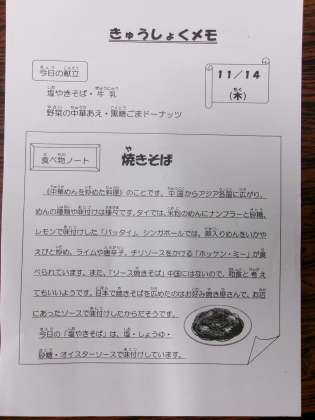 きゅうしょくメモ
今日の献立
塩やきそば・牛乳
野菜の中華あえ・黒糖ごまドーナッツ
11/14
(木)
食べ物ノート
焼きそば
《中華めんを炒めた料理》のことです。中国からアジア各国に広がり、
めんの種類や味付けは様々です。タイでは、米粉のめんにナンプラーと砂糖、
レモンで味付けした「パッタイ」、シンガポールでは、卵入りめんをいかや
えびと炒め、ライムや唐辛子、チリソースをかける「ホッケン・ミー」が食
べられています。また、「ソース焼きそば」中国にはないので、和食と考え
てもいいようです。日本で焼きそばを広めたのはお好み焼き屋さんで、お店
にあったソースで味付けしたからだそうです。
今日の「塩やきそば」は、塩・しょうゆ・
砂糖・オイスターソースで味付けしています。